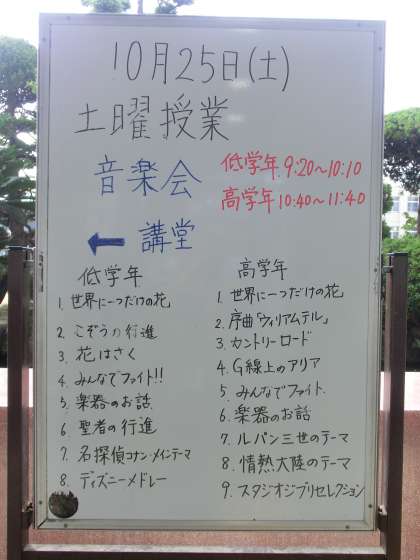 10月25日(土)
土曜授業
音楽会
低学年 9:20〜10:10
高学年 10:40〜11:40
← 講堂
低学年
1. 世界に一つだけの花
2. こぞうの行進
3. 花はさく
4. みんなでファイト!!
5. 楽器のお話
6. 聖者の行進
7. 名探偵コナン・メインテーマ
8. ディズニーメドレー
高学年
1. 世界に一つだけの花
2. 序曲「ウィリアムテル」
3. カントリーロード
4. G線上のアリア
5. みんなでファイト
6. 楽器のお話
7. ルパン三世のテーマ
8. 情熱大陸のテーマ
9. スタジオジブリセレクション